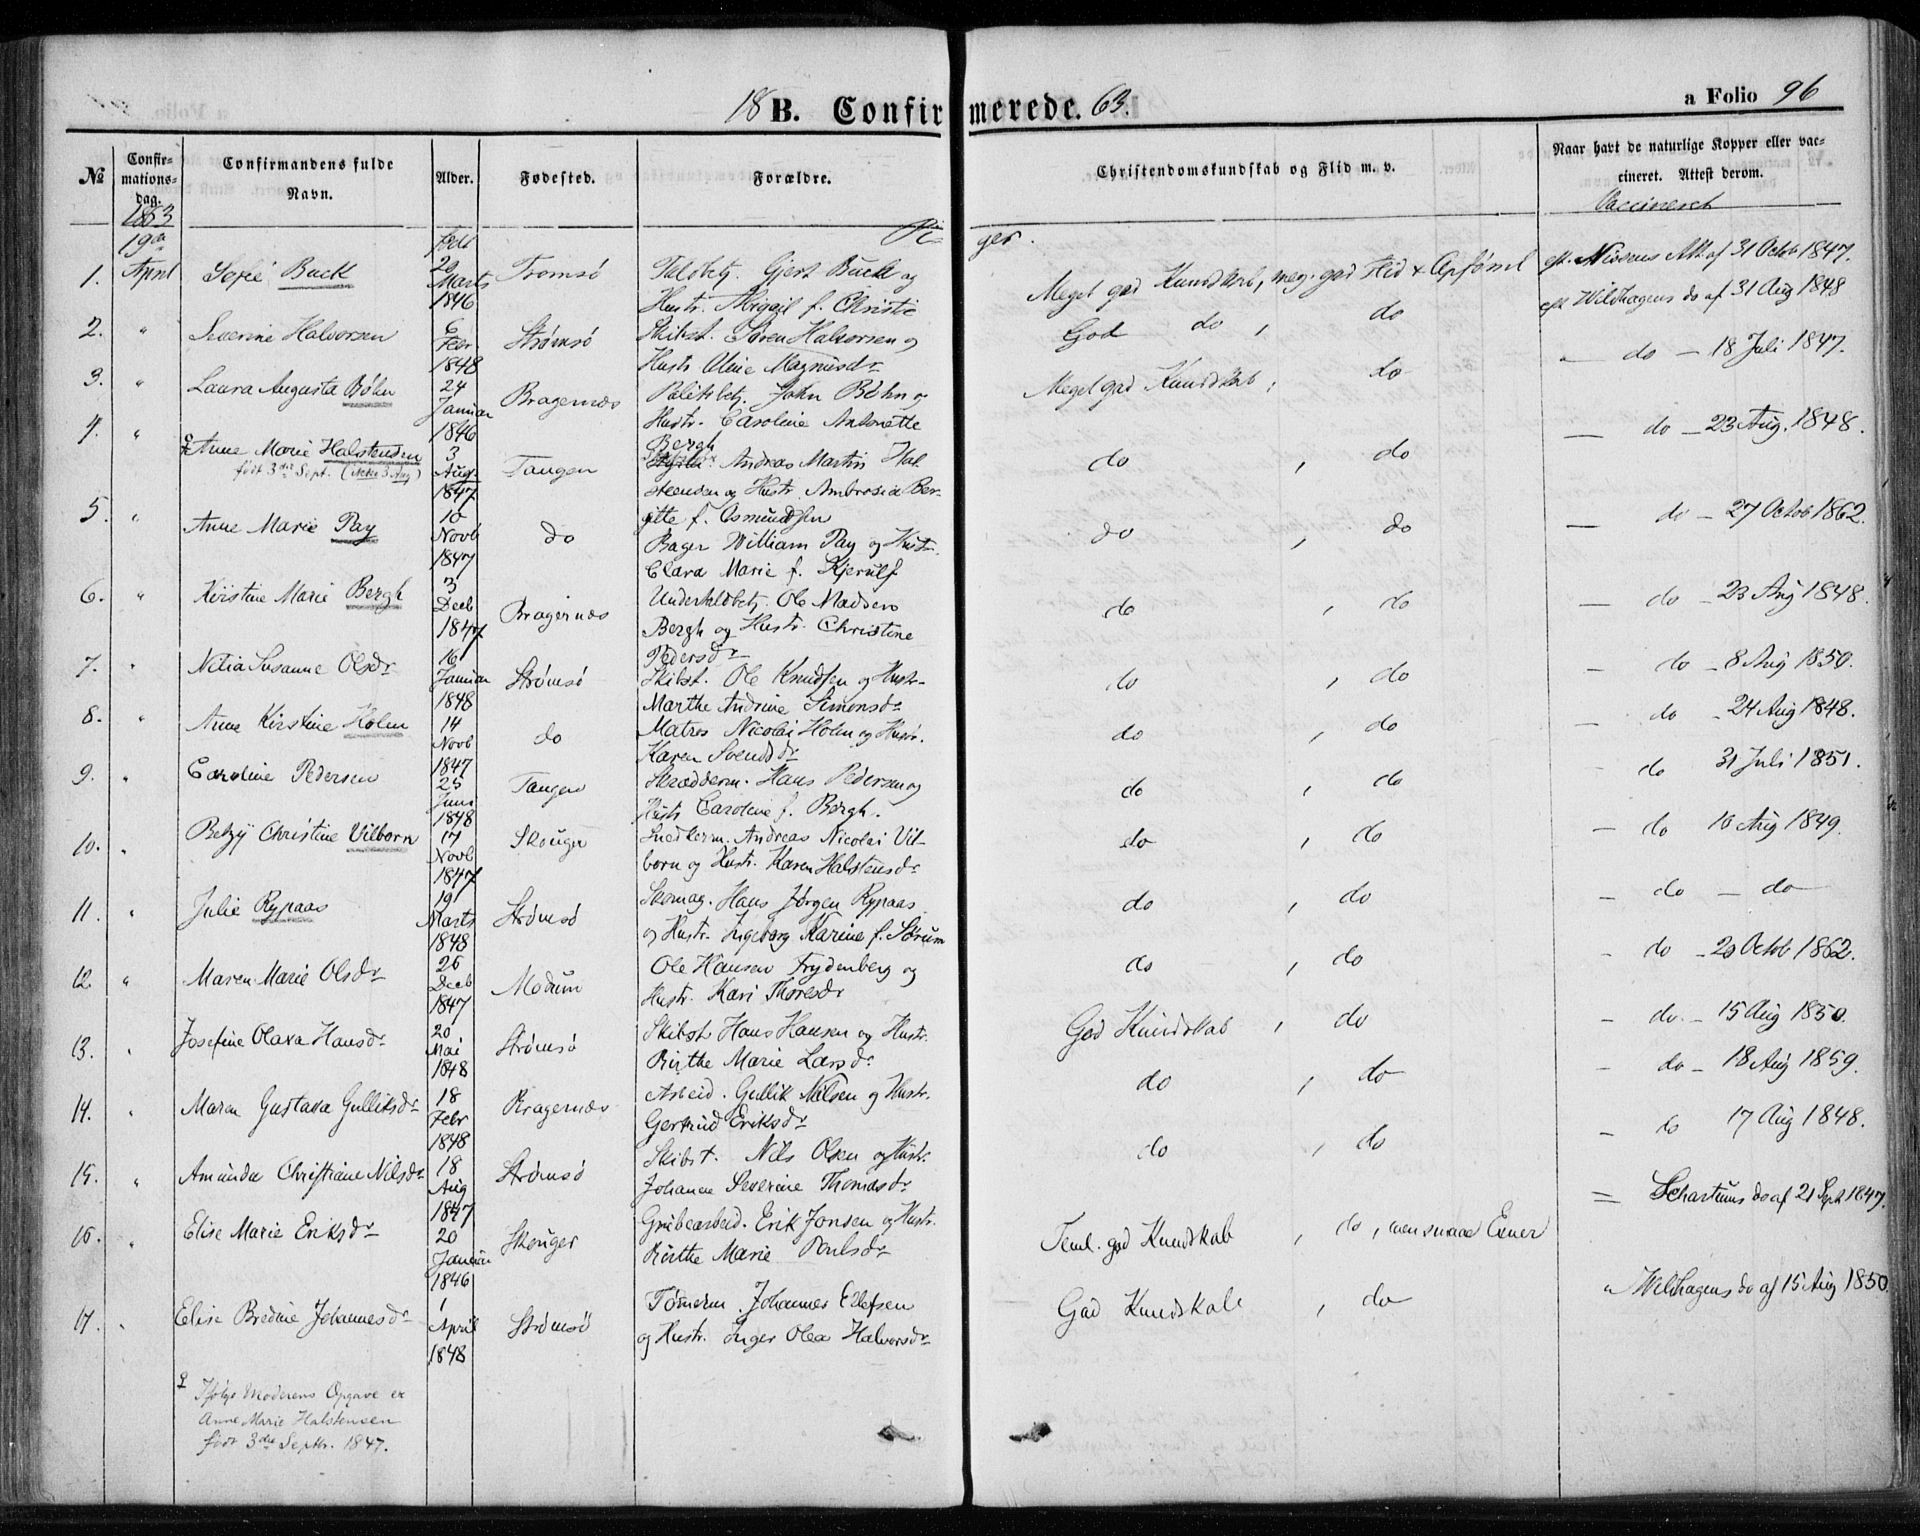 18 B. Confirmerede. 63.
a Folio 96
No
Confirmations-dag.
Confirmandens fulde Navn.
Alder.
Fødested.
Forældre.
Christendomskundskab og Flid m. v.
Naar havt de naturlige Kopper eller vaccineret. Attest derom.
Vaccineret
1863
19de
født
Piger.
1. April Sofie Buck 20 Marts 1846 Tromsø Toldbetj. Gjert Buck og
Hustr. Abigail f. Christie
Meget god Kundskab, meg. god Flid & Opførsel
eft. Nissens Att. af 31 Octb 1847.
2. " Severine Halvorsen 6 Febr 1848 Strømsø Skibst. Søren Halvorsen og
Hustr. Oline Magnusdr
God do , do
eft. Wilhagens do af 31 Aug 1848
3. " Laura Augusta Bøhn 24 Januar 1846 Bragernæs Politibetj. John Bøhn og
Hustr. Caroline Antonette
Bergh
Meget god Kundskab, do
— do — 18 Juli 1847.
4. " Anne Marie Halstensen 3 Aug 1847 Tangen Andreas Martin Hal
født 3die Sept. (ikke 3 Aug)
steensen og Hustr. Ambrosia Ber-
gitte f. Osmundsen
do , do
— do — 23 Aug. 1848.
5. " Anne Marie Pay 10 Novb 1847 do
Bager William Pay og Hustr.
Clara Marie f. Kjerulf
do , do
— do — 27 Octob 1862.
6. " Kirstine Marie Bergh 3 Decb 1847 Bragernæs Undertoldbetj. Ole Madsen
Bergh og Hustr. Christine
Pedersdr
do , do
— do — 23 Aug 1848.
7. " Susanne Olsdr 16 Januar 1848 Strømsø Skibst. Ole Knudsen og Hustr.
Marthe Andrine Simonsdr
do , do
— do — 8 Aug 1850.
8. " Anne Kirstine Holm 14 Novb 1847 do Matros Nicolai Holm og Hustr.
Karen Svendsdr
do , do
— do — 24 Aug 1848.
9. " Caroline Pedersen 25 Juni 1848 Tangen Skrædderm. Hans Pedersen og
Hustr. Caroline f. Bergh.
do , do
— do 31 Juli 1851.
10. " Betzy Christine Vilborn 17 Novb 1847 Skouger Snedkerm. Andreas Nicolai Vil-
born og Hustr. Karen Halstensdr
do , do
— do 10 Aug 1849.
11. " Julie Rypaas 19 Marts 1848 Strømsø Skomag. Hans Jørgen Rypaas
og Hustr. Ingeborg Karine f. Sørum
do , do
— do — do
12. " Maren Marie Olsdr 26 Decb 1847 Modum Ole Hansen Frydenberg og
Hustr. Kari Thoresdr
do , do
— do — 20 Octb 1862.
13. " Josefine Olava Hansdr 20 Mai 1848 Strømsø Skibst. Hans Hansen og Hustr.
Birthe Marie Larsdr
God Kundskab , do
— do — 15 Aug 1850.
14. " Maren Gustava Gulliksdr 18 Febr 1848 Bragernæs Arbeid. Gullik Nilsen og Hustr.
Gertrud Eriksdr
do , do
— do — 18 Aug 1859.
15. " Amunda Christiane Nilsdr 18 Aug 1847 Strømsø Skibst. Nils Olsen og Hustr.
Johanne Severine Thomasdr
do , do
— do 17 Aug 1848.
16. " Elise Marie Eriksdr 20 Januar 1846 Skouger Grubearbeid. Erik Jonsen og Hustr.
Birthe Marie Poulsdr
Teml. god Kundskab , do , men svage Evner
= Schartums do af 21 Sept 1847.
17. " Elise Bredine Johannesdr 1 April 1848 Strømsø Tømerm. Johannes Ellefsen
og Hustr. Inger Olea Halvorsdr
God Kundskab , do
" Wilhagens do af 15 Aug 1850
Ifølge Moderens Opgave er
Anne Marie Halstensen
født 3die Septbr. 1847.